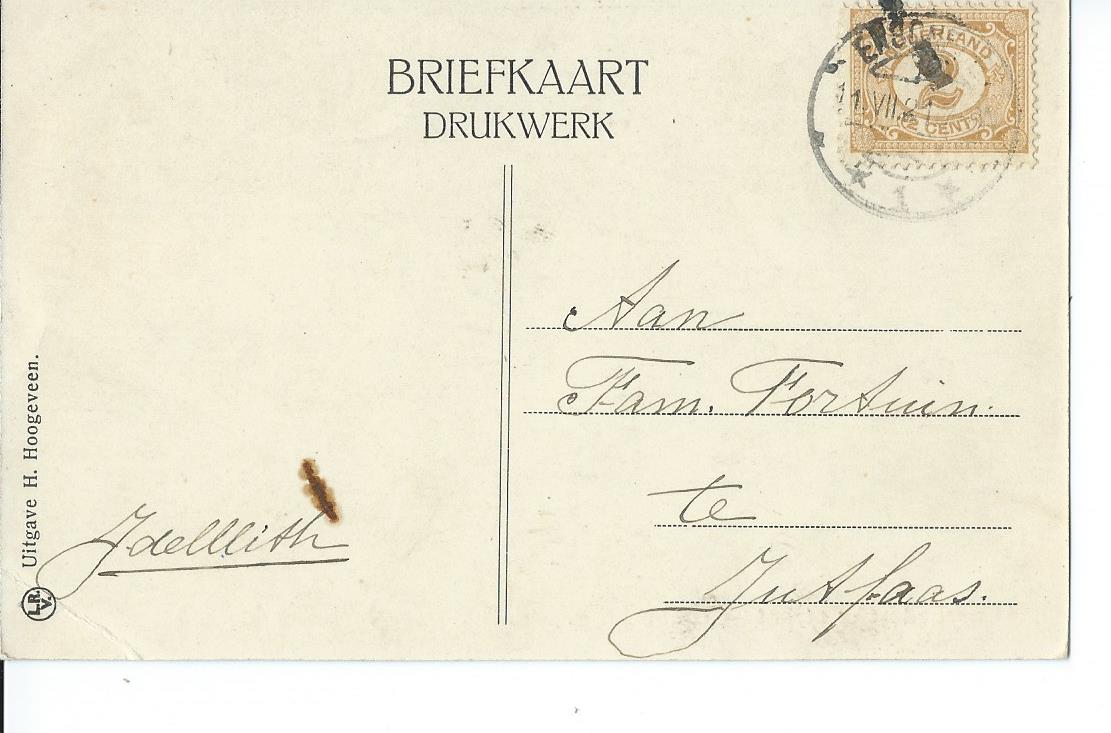 BRIEFKAART
DRUKWERK
NEDERLAND
2
CENT
11.VII.21
1
Aan
Fam. Fortuin.
te
Jutfaas.
Uitgave H. Hoogeveen.
L.R.
V.